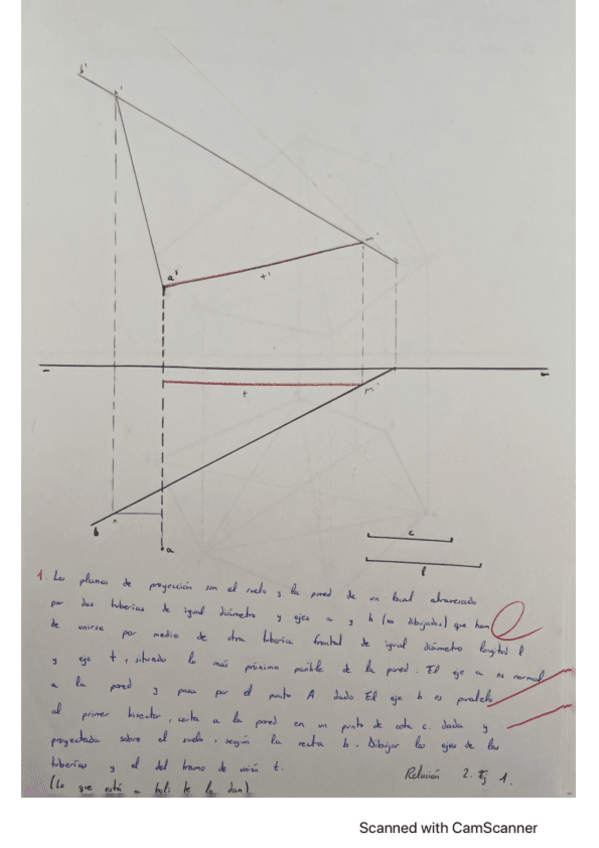 b'
r'
r'
a'
t'
t
r
r
b
a
c
l
1. Los planos de proyección son el suelo y la pared de un local atravesado
por dos tuberías de igual diámetro y ejes a y b (no dibujados) que han
de unirse por medio de otra tubería frontal de igual diámetro longitud l
y eje t, situado lo más próximo posible de la pared. El eje a es normal
a la pared y pasa por el punto A dado El eje b es paralelo
al primer bisector, corta a la pared en un punto de cota c. dada y
proyectada sobre el suelo, según la recta b. Dibujar los ejes de las
tuberías y el del tramo de unión t.
Relación 2. Ej 1.
(Lo que está a boli te lo dan)
Scanned with CamScanner